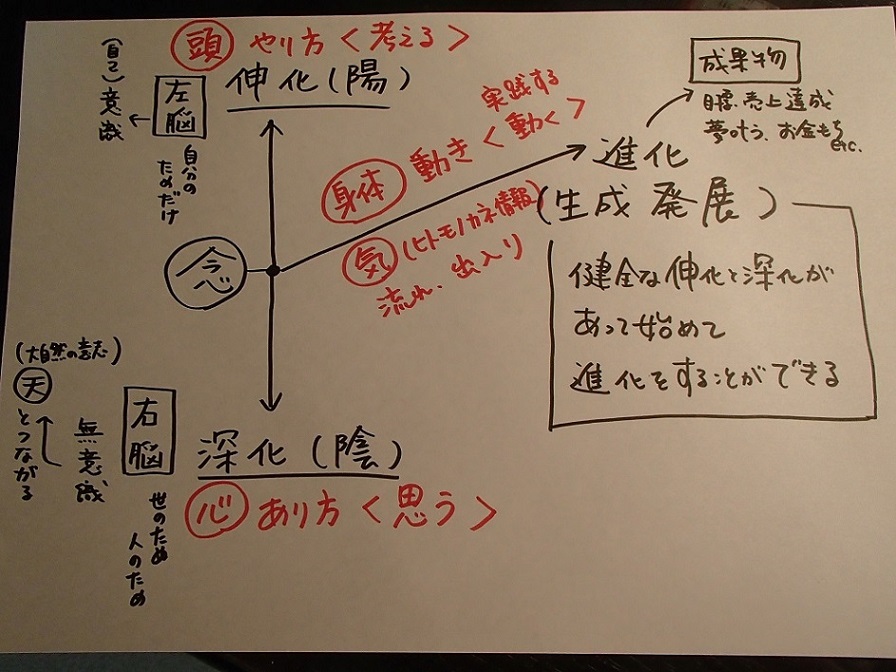 頭 やり方<考える>
伸化(陽)
左脳
(自己)意識
自分の
ためだけ
念
実践する
身体 動き<動く>
気 (ヒトモノカネ情報)
流れ、出入り
成果物
目標、売上達成
夢叶う、お金もち
etc.
進化
(生成発展)
健全な伸化と深化が
あって始めて
進化をすることができる
(大自然の意志)
天
とつながる
無意識
右脳
深化(陰)
心 あり方<思う>
世のため
人のため